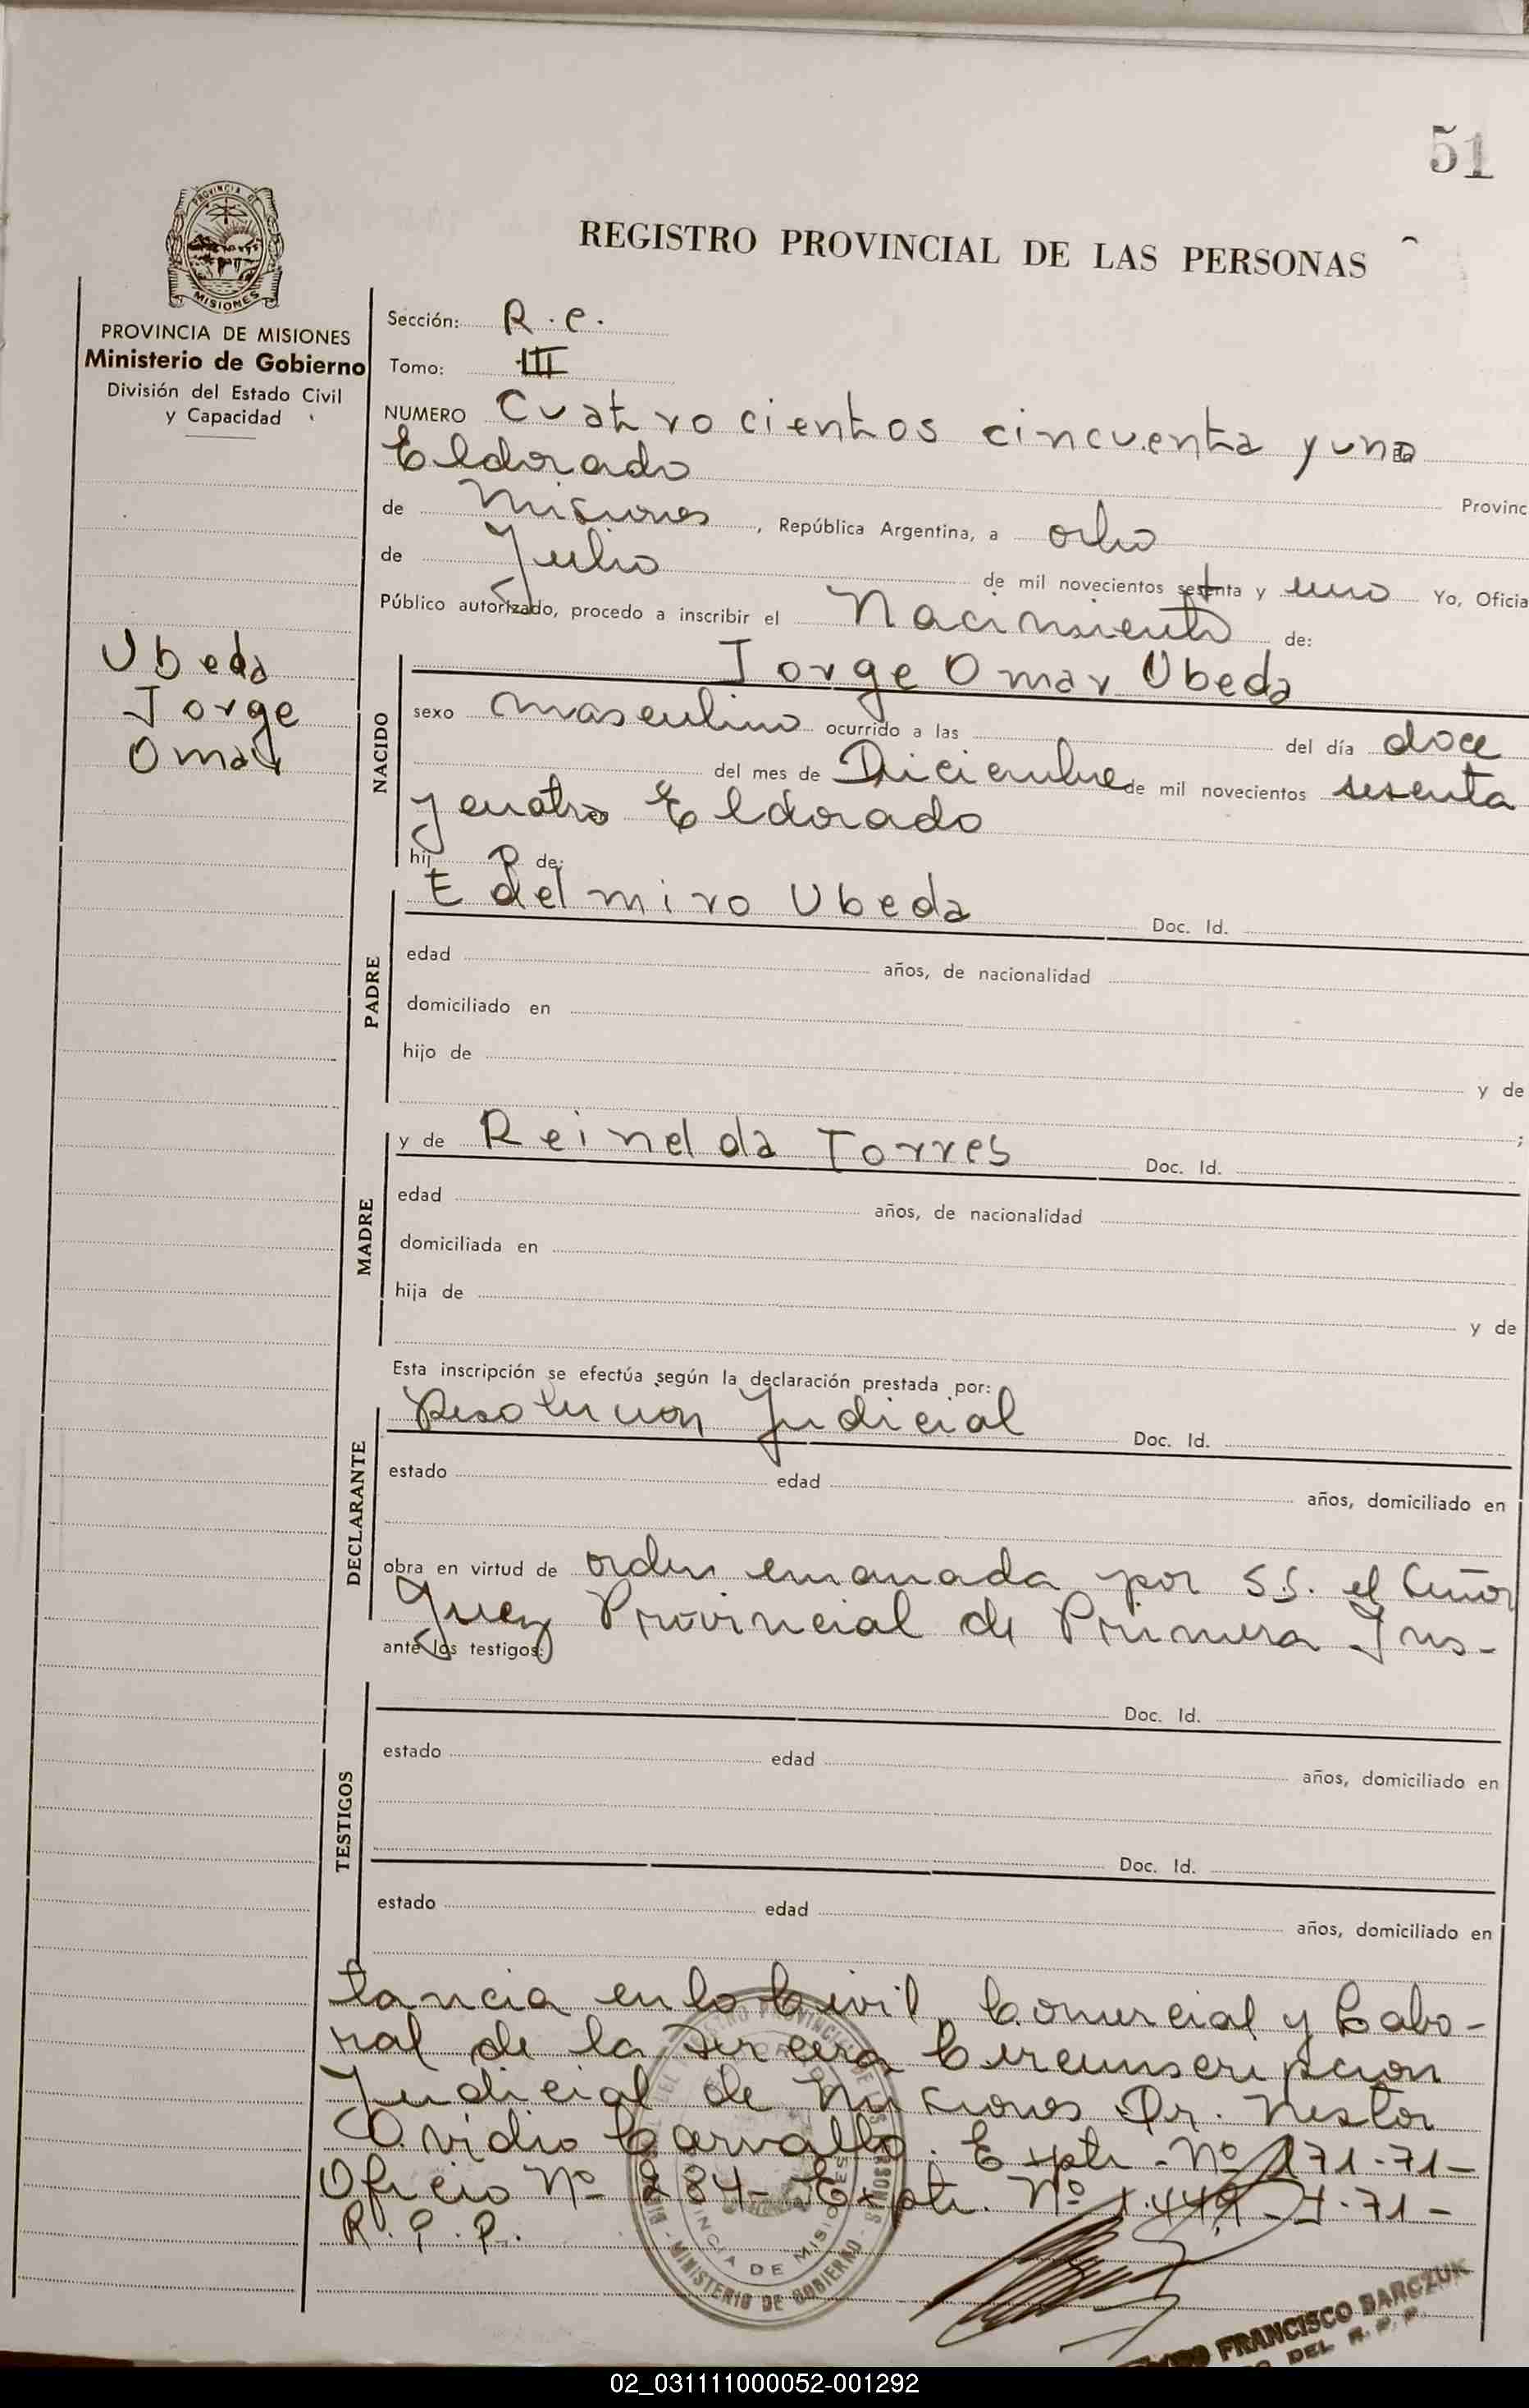 51
PROVINCIA DE
MISIONES
REGISTRO PROVINCIAL DE LAS PERSONAS
PROVINCIA DE MISIONES
Ministerio de Gobierno
División del Estado Civil
y Capacidad
Sección: R.C.
Tomo: III
NUMERO Cuatrocientos cincuenta y uno
Eldorado Provinc
de Misiones, República Argentina, a ocho
de Julio de mil novecientos setenta y uno Yo, Oficia
Público autorizado, procedo a inscribir el Nacimiento de:
Ubeda
Jorge
Omar
NACIDO
Jorge Omar Ubeda
sexo masculino ocurrido a las del día doce
del mes de Diciembre de mil novecientos sesenta
y cuatro Eldorado
hij o de:
PADRE
Edelmiro Ubeda Doc. Id.
edad años, de nacionalidad
domiciliado en
hijo de y de
;
MADRE
y de Reinelda Torres Doc. Id.
edad años, de nacionalidad
domiciliada en
hija de y de
Esta inscripción se efectúa según la declaración prestada por:
DECLARANTE
Resolucion Judicial Doc. Id.
estado edad años, domiciliado en
obra en virtud de orden emanada por S.S. el Señor
Juez Provincial de Primera Ins-
ante los testigos:
TESTIGOS
Doc. Id.
estado edad años, domiciliado en
Doc. Id.
estado edad años, domiciliado en
tancia en lo Civil, Comercial y Labo-
ral de la Tercera Circunscripcion
Judicial de Misiones Dr. Nestor
Ovidio Carvallo. Expte. Nº 171-71-
Oficio Nº 284- Expte. Nº 1.449-J-71-
R.P.P.
PROVINCIA DE MISIONES
MINISTERIO DE GOBIERNO
FRANCISCO DARCZUK
DEL R.P.P.
02_031111000052-001292